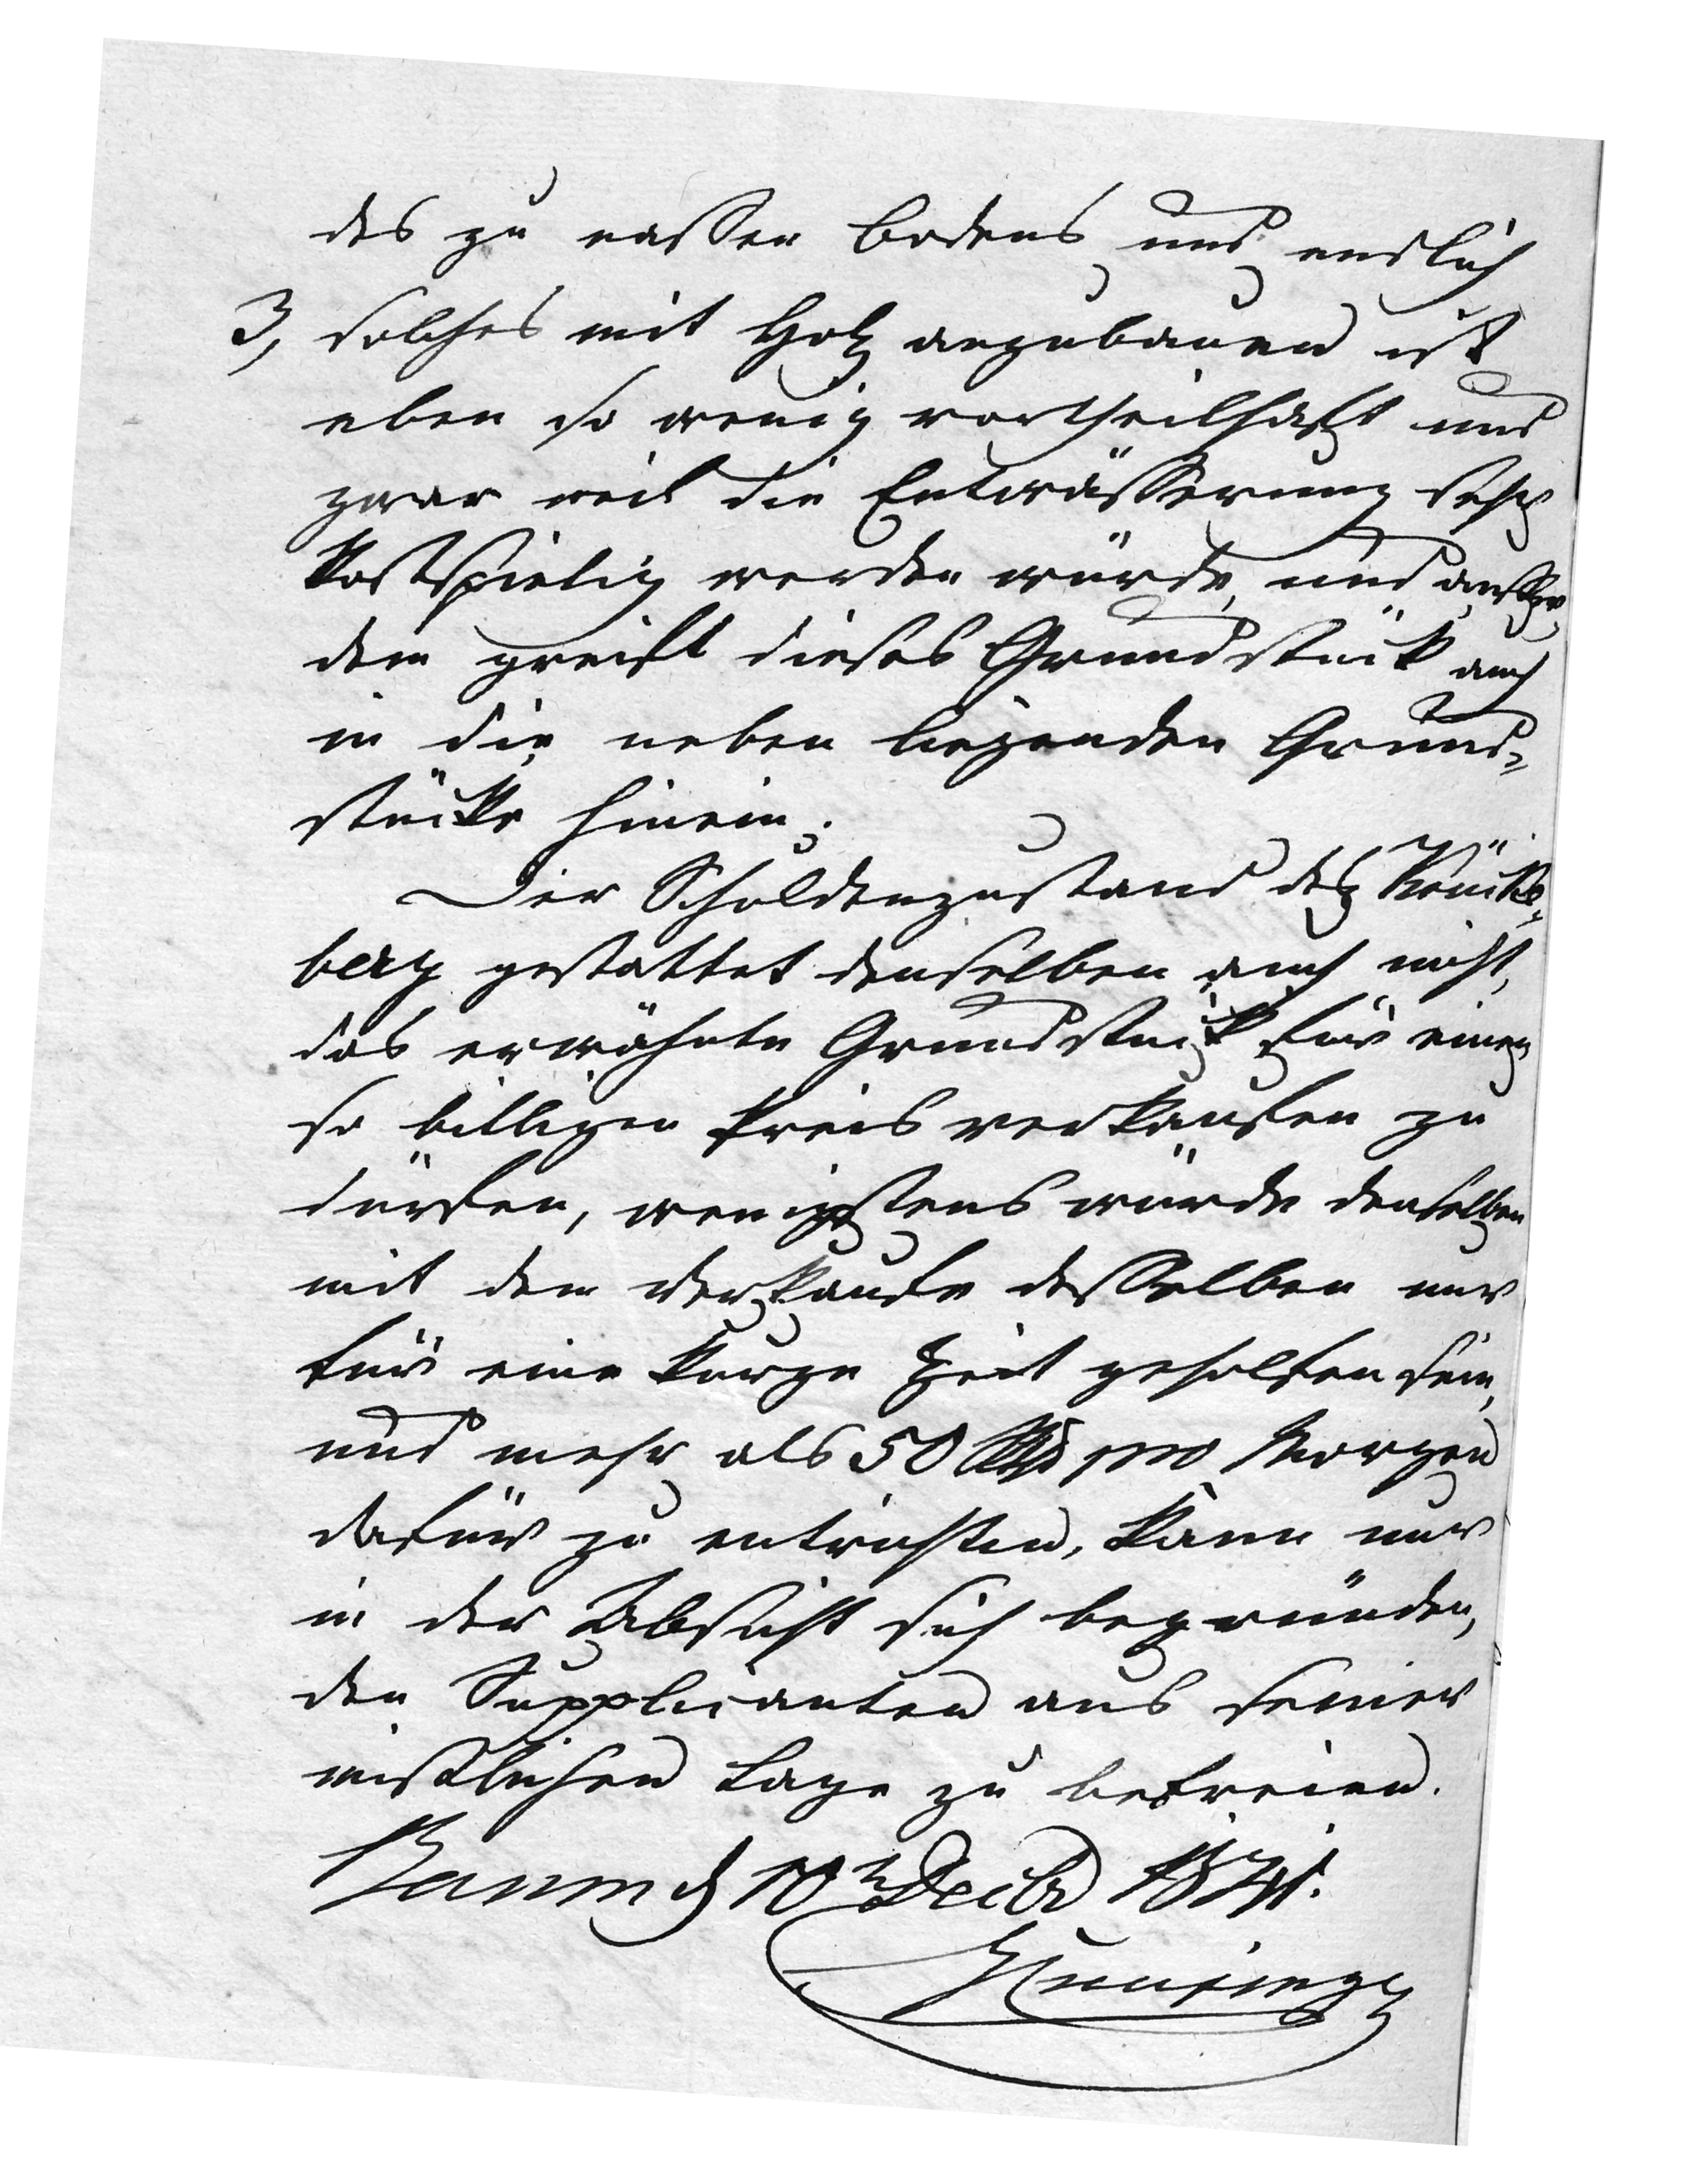 des zu nassen Bodens und endlich
3, solches mit Holz anzubauen ist
eben so wenig vortheilhaft und
zwar weil die Entwässerung sehr
kostspielig werden würde, und ausser
dem greift dieses Grundstück auch
in die neben liegenden Grund=
stücke hinein.
Der Schuldenzustand des
berg gestattet denselben auch nicht,
das erwähnte Grundstück für einen
so billigen Preis verkaufen zu
dürfen, wenigstens würde denselben
mit dem Verkaufe desselben nur
für eine kurze Zeit geholfen sein,
und mehr als 50 pro Morgen
dafür zu entrichten, kann nur
in der Absicht sich begründen,
den Supplicanten aus seiner
mißlichen Lage zu befreien.
10 Decbr